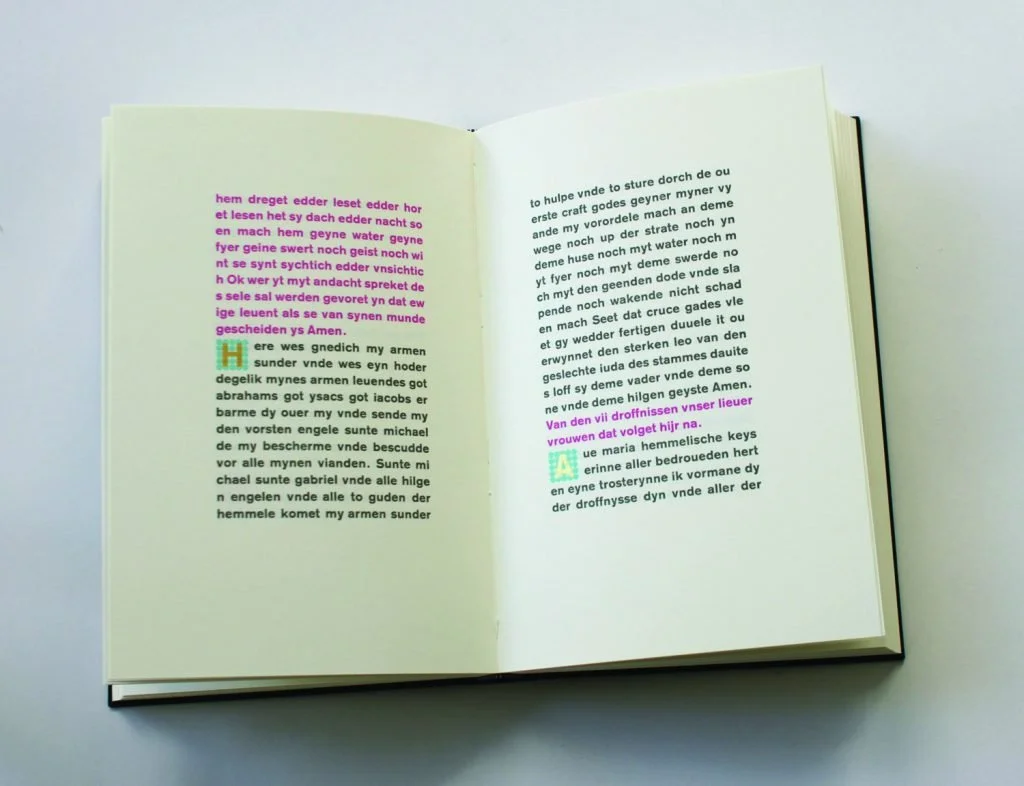 hem dreget edder leset edder hor
et lesen het sy dach edder nacht so
en mach hem geyne water geyne
fyer geine swert noch geist noch wi
nt se synt sychtich edder vnsichtic
h Ok wer yt myt andacht spreket de
s sele sal werden gevoret yn dat ew
ige leuent als se van synen munde
gescheiden ys Amen.
Here wes gnedich my armen
sunder vnde wes eyn hoder
degelik mynes armen leuendes got
abrahams got ysacs got iacobs er
barme dy ouer my vnde sende my
den vorsten engele sunte michael
de my bescherme vnde bescudde
vor alle mynen vianden. Sunte mi
chael sunte gabriel vnde alle hilge
n engelen vnde alle to guden der
hemmele komet my armen sunder
to hulpe vnde to sture dorch de ou
erste craft godes geyner myner vy
ande my vorordele mach an deme
wege noch up der strate noch yn
deme huse noch myt water noch m
yt fyer noch myt deme swerde no
ch myt den geenden dode vnde sla
pende noch wakende nicht schad
en mach Seet dat cruce gades vle
et gy wedder fertigen duuele it ou
erwynnet den sterken leo van den
geslechte iuda des stammes dauite
s loff sy deme vader vnde deme so
ne vnde deme hilgen geyste Amen.
Van den vii droffnissen vnser lieuer
vrouwen dat volget hijr na.
Aue maria hemmelische keys
erinne aller bedroueden hert
en eyne trosterynne ik vormane dy
der droffnysse dyn vnde aller der